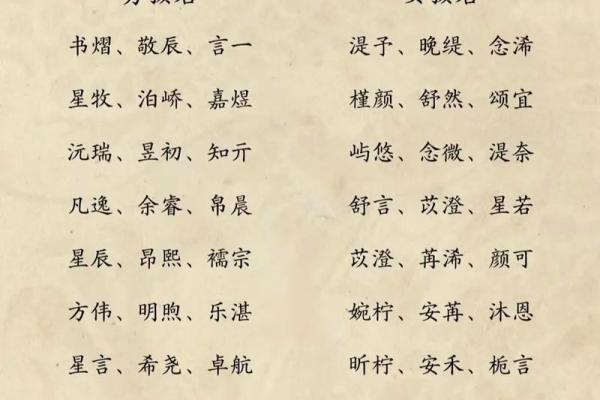 男孩名 女孩名
书熠、敬辰、言一 湜予、晚缇、念浠
星牧、泊峤、嘉煜 槿颜、舒然、颂宜
沅瑞、昱初、知亓 屿悠、念微、湜奈
凡逸、余睿、帛晨 舒言、苡澄、星若
星辰、昂熙、襦宗 苡澄、苒浠、颜可
方伟、明煦、乐湛 婉柠、安苒、沐恩
星言、希尧、卓航 昕柠、安禾、栀言